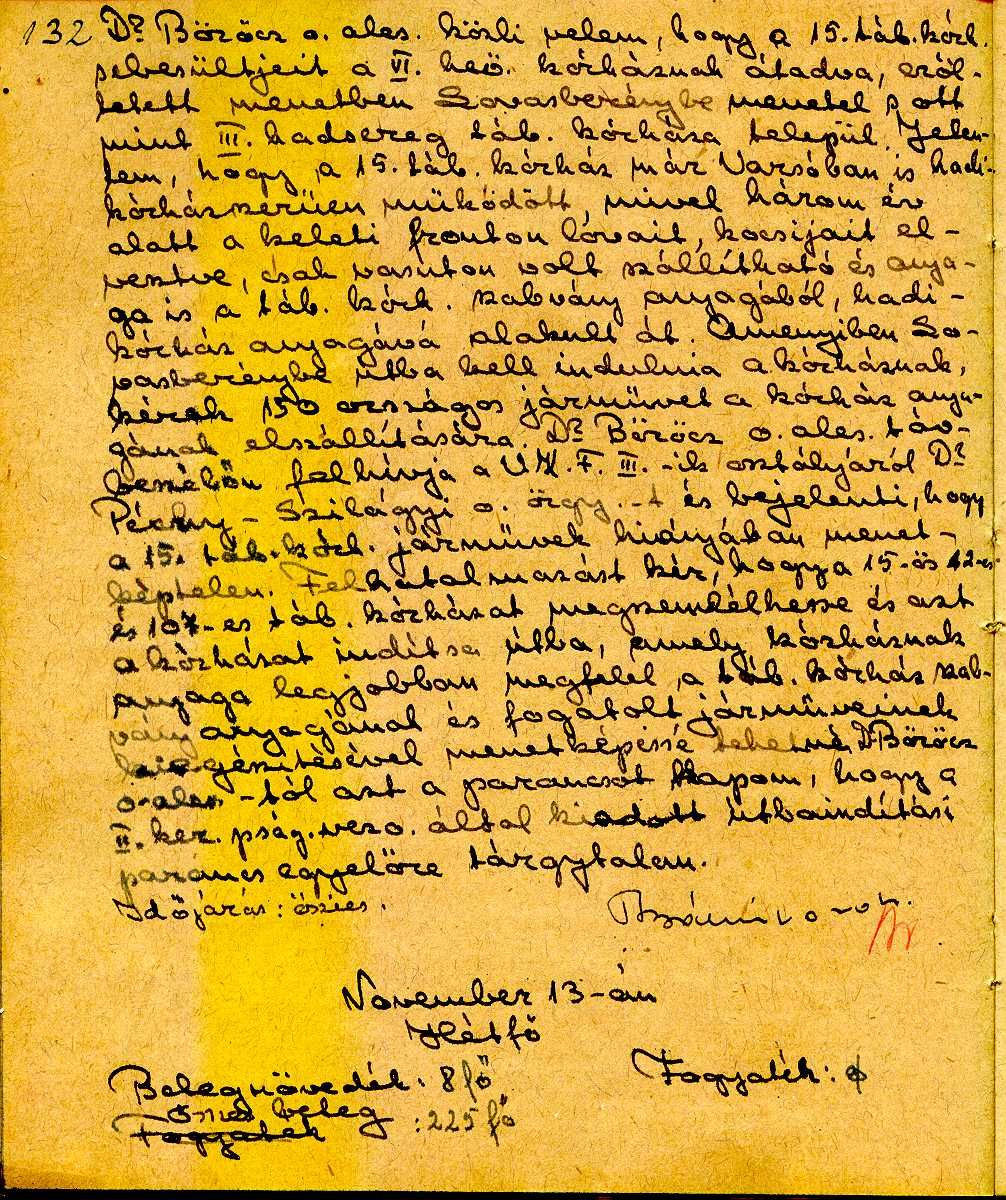 132 Dr Böröcz o. ales. közli velem, hogy a 15. táb. kórh.
sebesültjeit a VI. heö. kórháznak átadva, eről-
tetett menetben Lovasberénybe menetel s ott
mint III. hadsereg táb. kórháza települ. Jelen-
tem, hogy a 15. táb. kórház már Varsóban is hadi-
kórházszerűen működött, mivel három év
alatt a keleti fronton lóvait, kocsijait el-
vesztve, csak vasúton volt szállítható és anya-
ga is a táb. kórh. szabvány anyagából, hadi-
kórház anyagává alakult át. Amenyiben Lo-
vasberénybe útba kell indulnia a kórháznak,
kérek 150 országos járművet a kórház anya-
gának elszállítására. Dr Böröcz o. ales. táv-
beszélőn felhívja a VK. F. III. -ik osztályáról Dr
Péchy - Szilágyi o. őrgy. -t és bejelenti, hogy
a 15. táb. kórh. járművek hiányában menet-
képtelen. Felhatalmazást kér, hogy a 15-ös 42-es
és 107-es táb. kórházat megszemlélhesse és azt
a kórházat indítsa útba, amely kórháznak
anyaga legjobban megfelel a táb. kórház szab-
vány anyagának és fogatolt járműveinek
kiegészítésével menetképessé tehetné. Dr Böröcz
o. ales -tól azt a parancsot kapom, hogy a
II. ker. pság. vezo. által kiadott útbaindítási
parancs egyelőre tárgytalan.
Időjárás: őszies.
November 13-án
Hétfő
Betegnövedék: 8 fő Fogyaték: ø
Összes beteg
Fogyaték : 225 fő